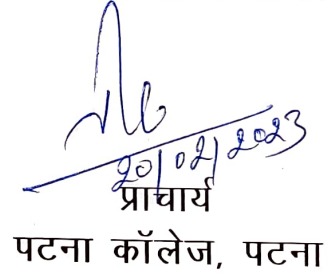 20/02/2023
प्राचार्य
पटना कॉलेज, पटना